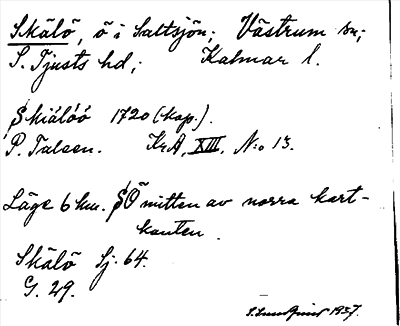 Skälö, ö i Saltsjön; Västrum sn;
S. Tjusts hd; Kalmar l.
Skiälöö 1720 (kop.).
P. Talsen. KrA, XIII, N:o 13.
Läge 6 km. SÖ mitten av norra kart-
kanten.
Skälö Sj. 64.
G. 29.
1937.